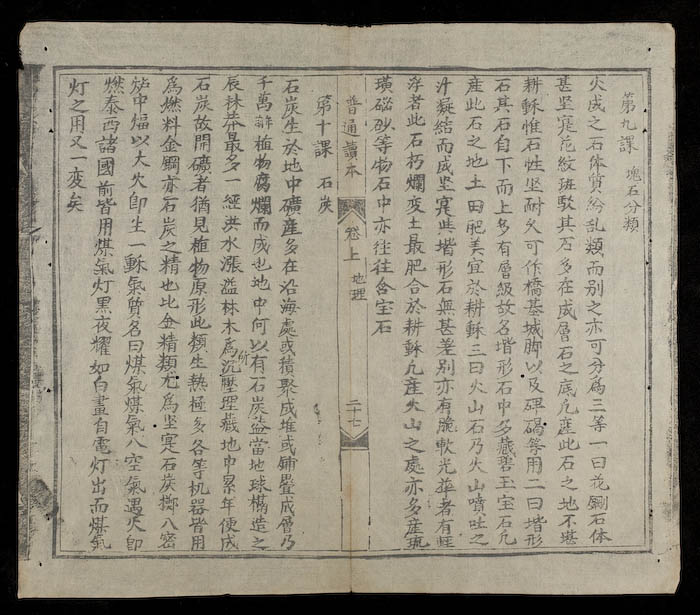 第九課 塊石分類
火成之石体質紛乱類而别之亦可分爲三等一曰花剛石体
甚坚寔花紋班駁其石多在成層石之底凢産此石之地不堪
耕穌惟石性坚耐久可作橋基城脚以及碑碣等用二曰堦形
石其石自下而上多有層級故名堦形石中多藏碧玉宝石凢
産此石之地土田肥美宜於耕穌三曰火山石乃火山噴吐之
汁凝結而成坚寔與堦形石無甚差别亦有脆軟光華者有軽
浮者此石朽爛変土最肥合於耕穌凢産火山之處亦多産琉
璜磠砂等物石中亦往往含宝石
普通讀本 卷上 地理 二十七
第十課 石炭
石炭生於地中礦産多在沿海處或積聚成堆或鋪疊成層乃
千萬年前植物腐爛而成也地中何以有石炭盖當地球搆造之
辰林莽最多一經洪水漲溢林木爲所沉壓埋藏地中累年便成
石炭故開礦者猶見植物原形此類生热極多各等机器皆用
爲燃料金鋼亦石炭之精也比金精類尤爲坚寔石炭擲入密
炉中煏以大火即生一穌氣質名曰煤氣煤氣入空氣遇火即
燃泰西諸國前皆用煤氣灯黑夜耀如白晝自電灯出而煤氣
灯之用又一変矣